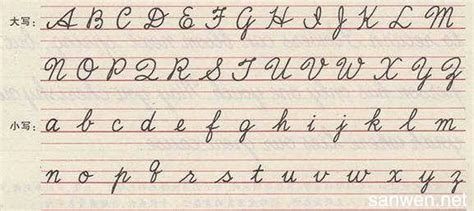 大写: A B C D E F G H I J K L M
N O P Q R S T U V W X Y Z
小写: a b c d e f g h i j k l m
n o p q r s t u v w x y z
sanwen.net